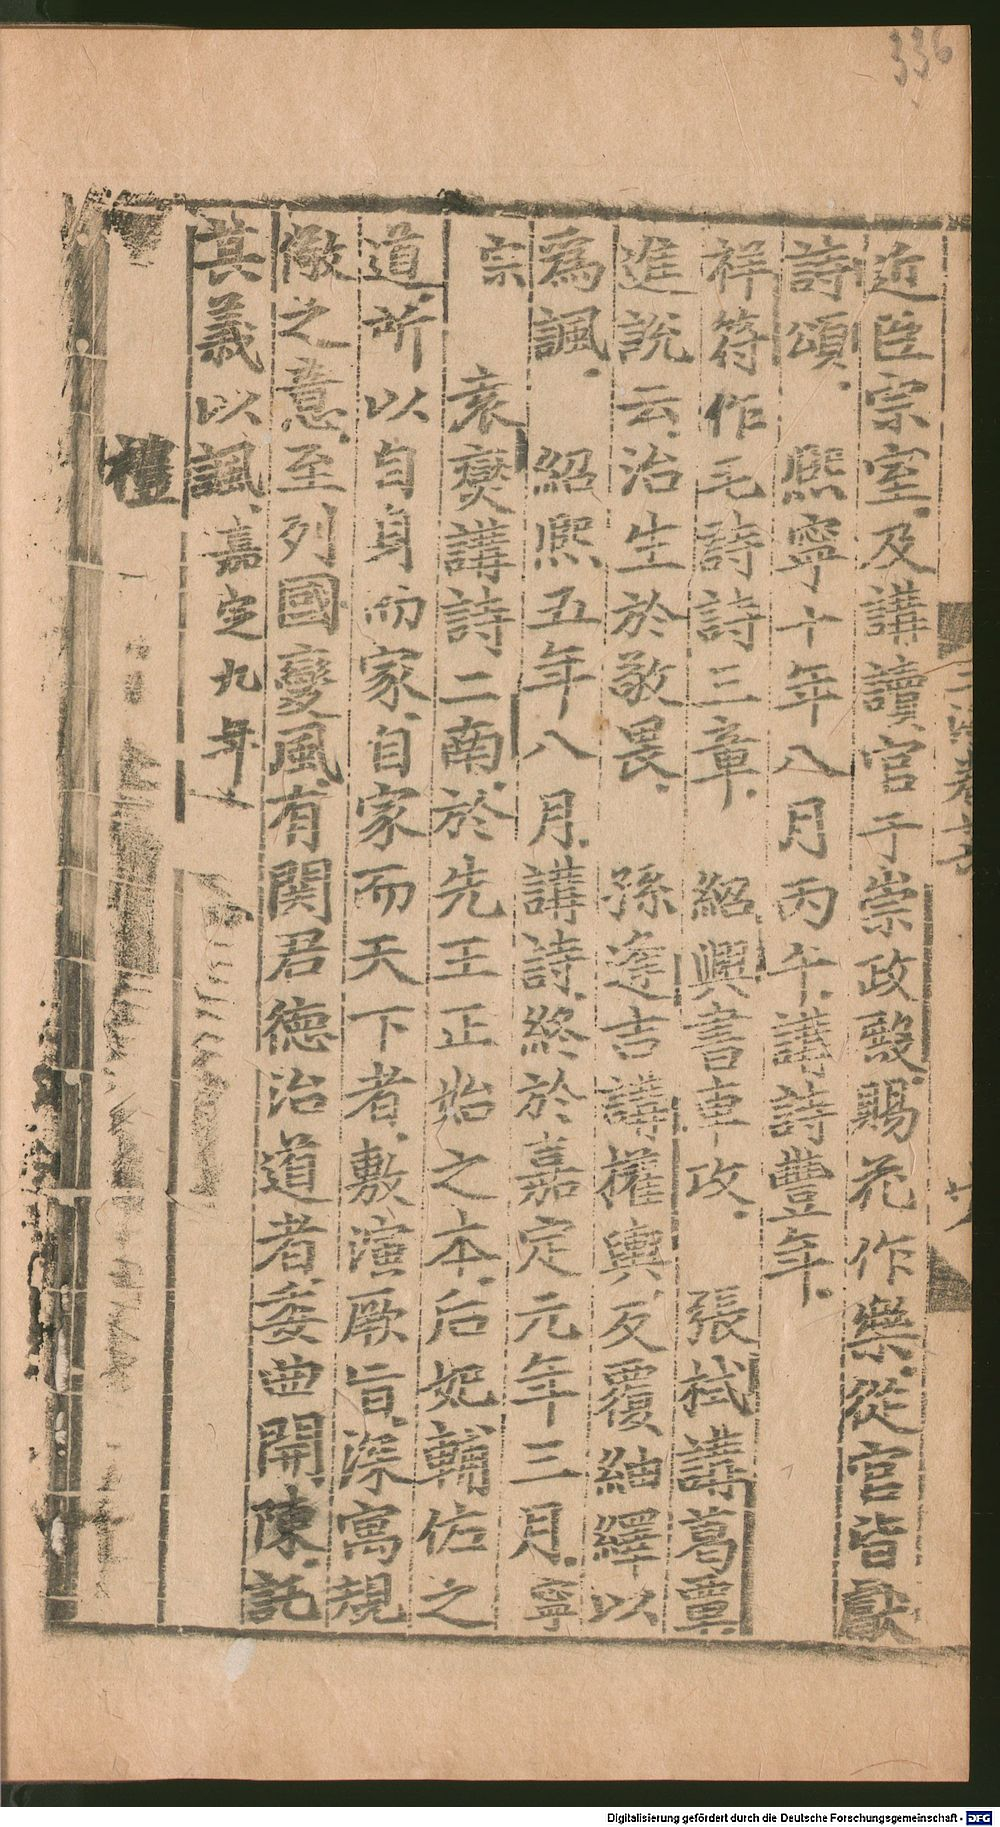 336
近臣宗室及講讀官于崇政殿賜花作樂從官皆獻
詩頌 熙寧十年八月丙午講詩豐年
祥符作毛詩詩三章 紹興書車攻 張栻講葛覃
進說云治生於敬畏 孫逢吉講權輿反覆紬繹以
為諷 紹熙五年八月講詩終於嘉定元年三月寧
宗 袁燮講詩二南於先王正始之本后妃輔佐之
道所以自身而家自家而天下者敷演厥旨深寓規
儆之意至列國變風有関君德治道者委曲開陳託
其義以諷嘉定九年
禮
Digitalisierung gefördert durch die Deutsche Forschungsgemeinschaft - DFG